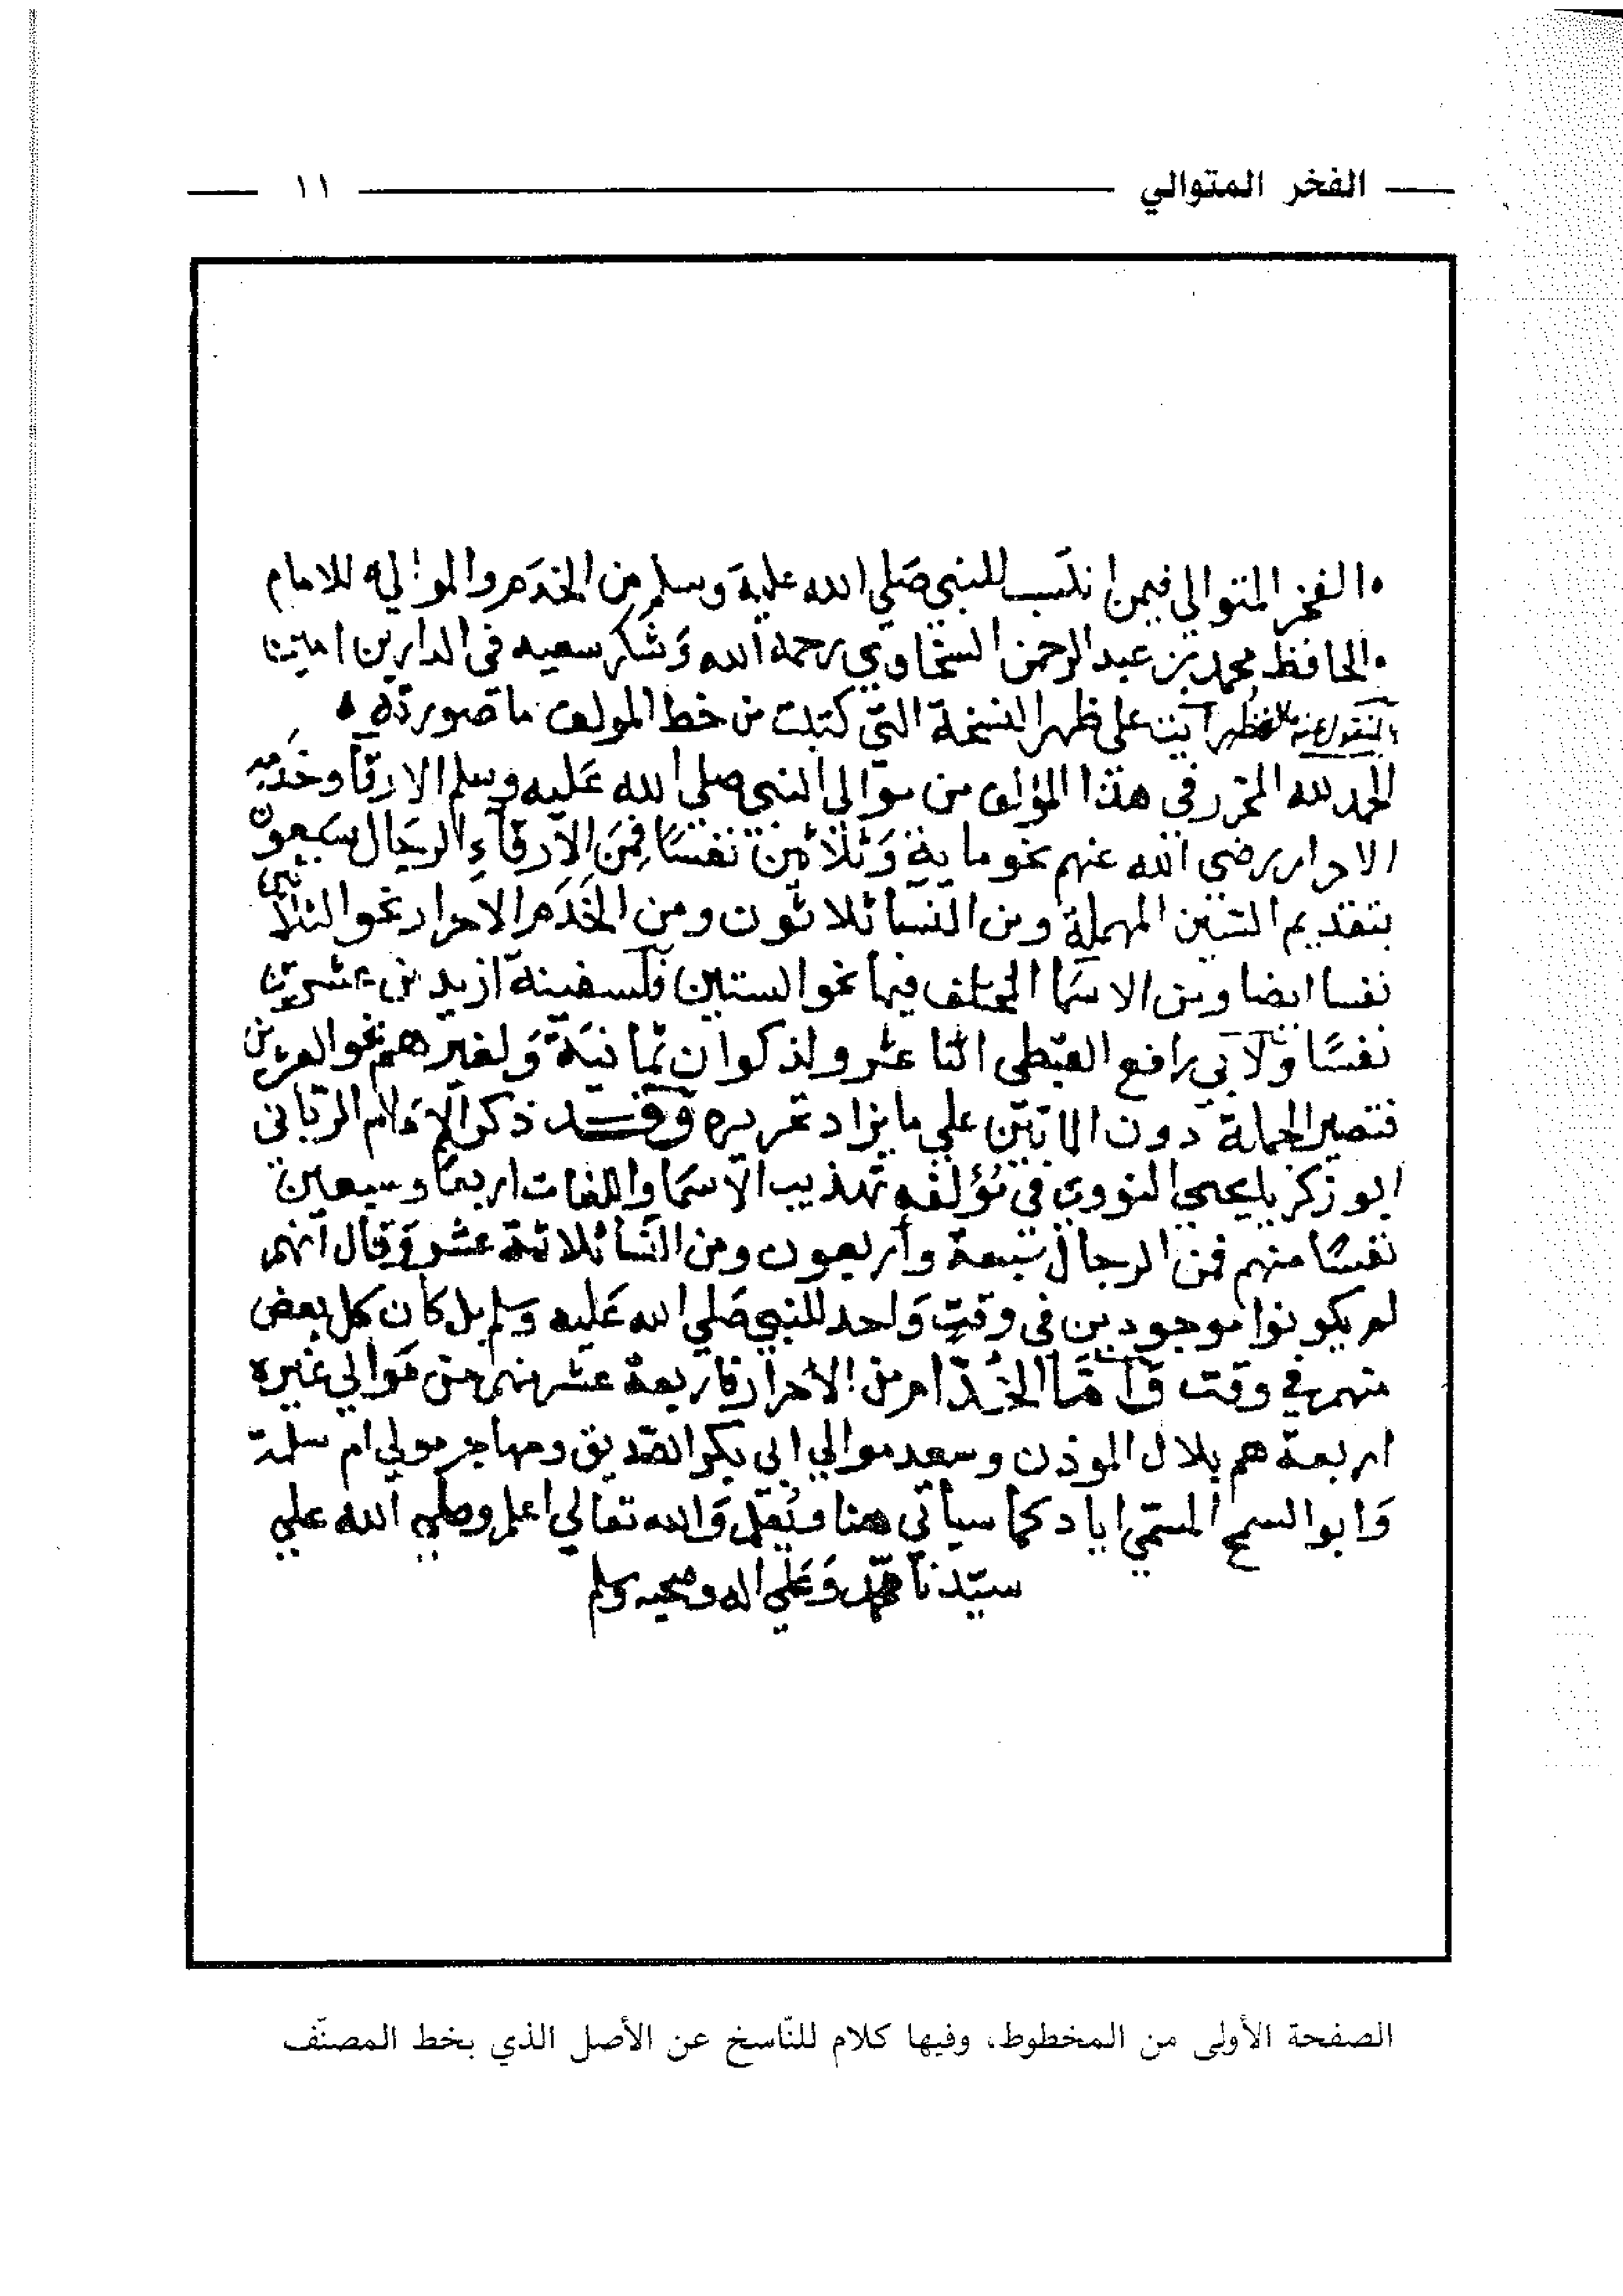 الفخر المتوالي ١١
الفخر المتوالي فيمن انتسب للنبي صَلي الله عليه وسلم من الخدَم والموالي للامام
الحافظ محمد بن عبد الرحمن السخاوي رحمه الله وَشكر سعيه في الدارين امين
رايت على ظهر النسخة التي كتبت من خط المولف ما صورته
الحمد لله المحرر في هذا المؤلف من موالي النبي صلي الله عَليه وسلم الارقآ وخدَمه
الاحرار رضي الله عنهم نحو ماية وَثلاثين نفسًا فِمَن الاَرقآءِ الرجَال سَبعون
بتقديم السّين المهملة ومن النسآ ثلاثون ومن الخَدَم الاحرار نحو الثلاثين
نفسا ايضا ومن الاسمَا المختلف فيها نحو الستين فلسفينة ازيد من عشرين
نفسًا وَلاَبي رافع القبطي اثنا عشر ولذكوان ثمانيَة وَلغيرهم نحو العشرين
فتصير الجملة دون الماتين علي ما يزاد تحريره وَقـد ذكر الاِمَام الرّباني
ابو زكريا يحيي النووي في مُؤلفه تهذيب الاسمَا واللغات اربعًا وسبعين
نفسًا منهم فمن الرجال سَبعة وأربعون ومن النسَا ثلاثة عشر وَقال انهم
لم يكونوا موجودين في وقتٍ وَاحد للنبي صَلي الله عَليه وسلم بل كان كل بعض
منهم في وقت وَاَمَّا الخُدّام من الاحرار فاربعة عشر منهم من مَوالي غيره
اربعة هم بلال الموذن وسعد موالي ابي بكر الصّديق ومهاجر مولي ام سلمة
وَابو السمح المسَمّي اياد كما سيأتي هنا وَالله تعالي اعلم وصلي الله علي
سيّدنا محمّد وَعَلي اله وصحبه وسلم
الصفحة الأولى من المخطوط، وفيها كلام للنّاسخ عن الأصل الذي بخط المصنّف